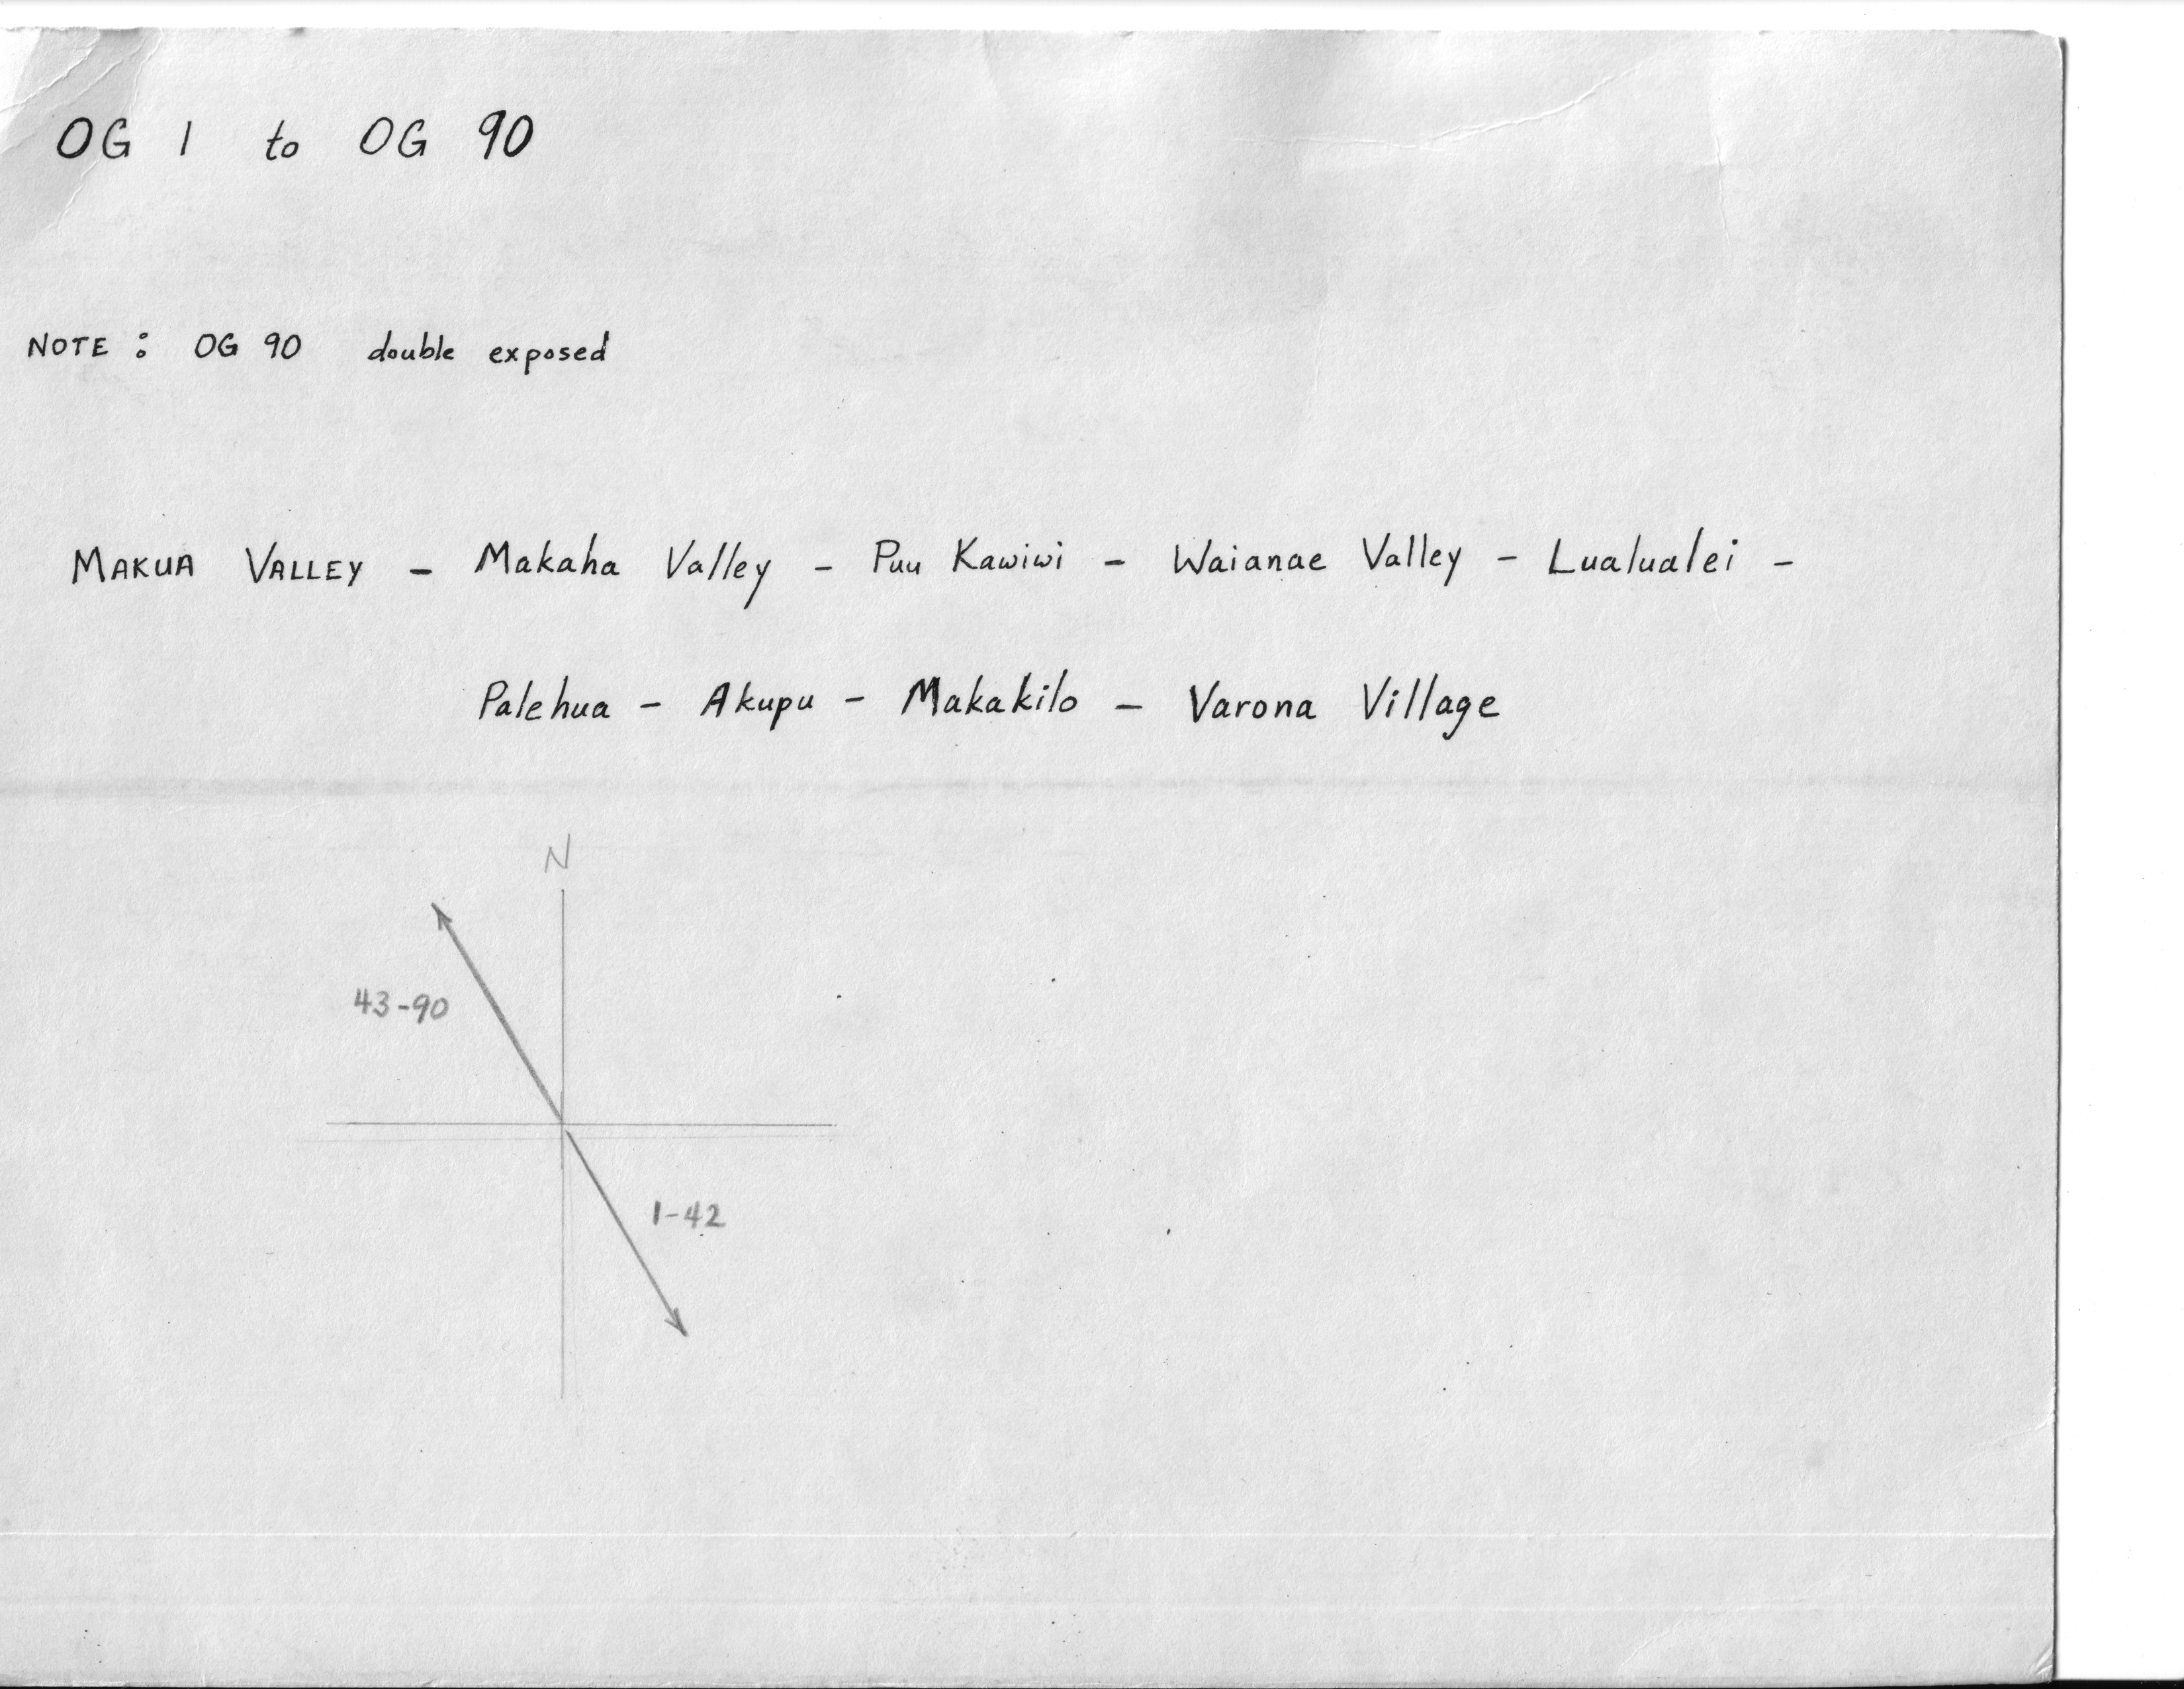 OG 1 to OG 90
NOTE : OG 90 double exposed
MAKUA VALLEY - Makaha Valley - Puu Kawiwi - Waianae Valley - Lualualei -
Palehua - Akupu - Makakilo - Varona Village
N
43-90
1-42